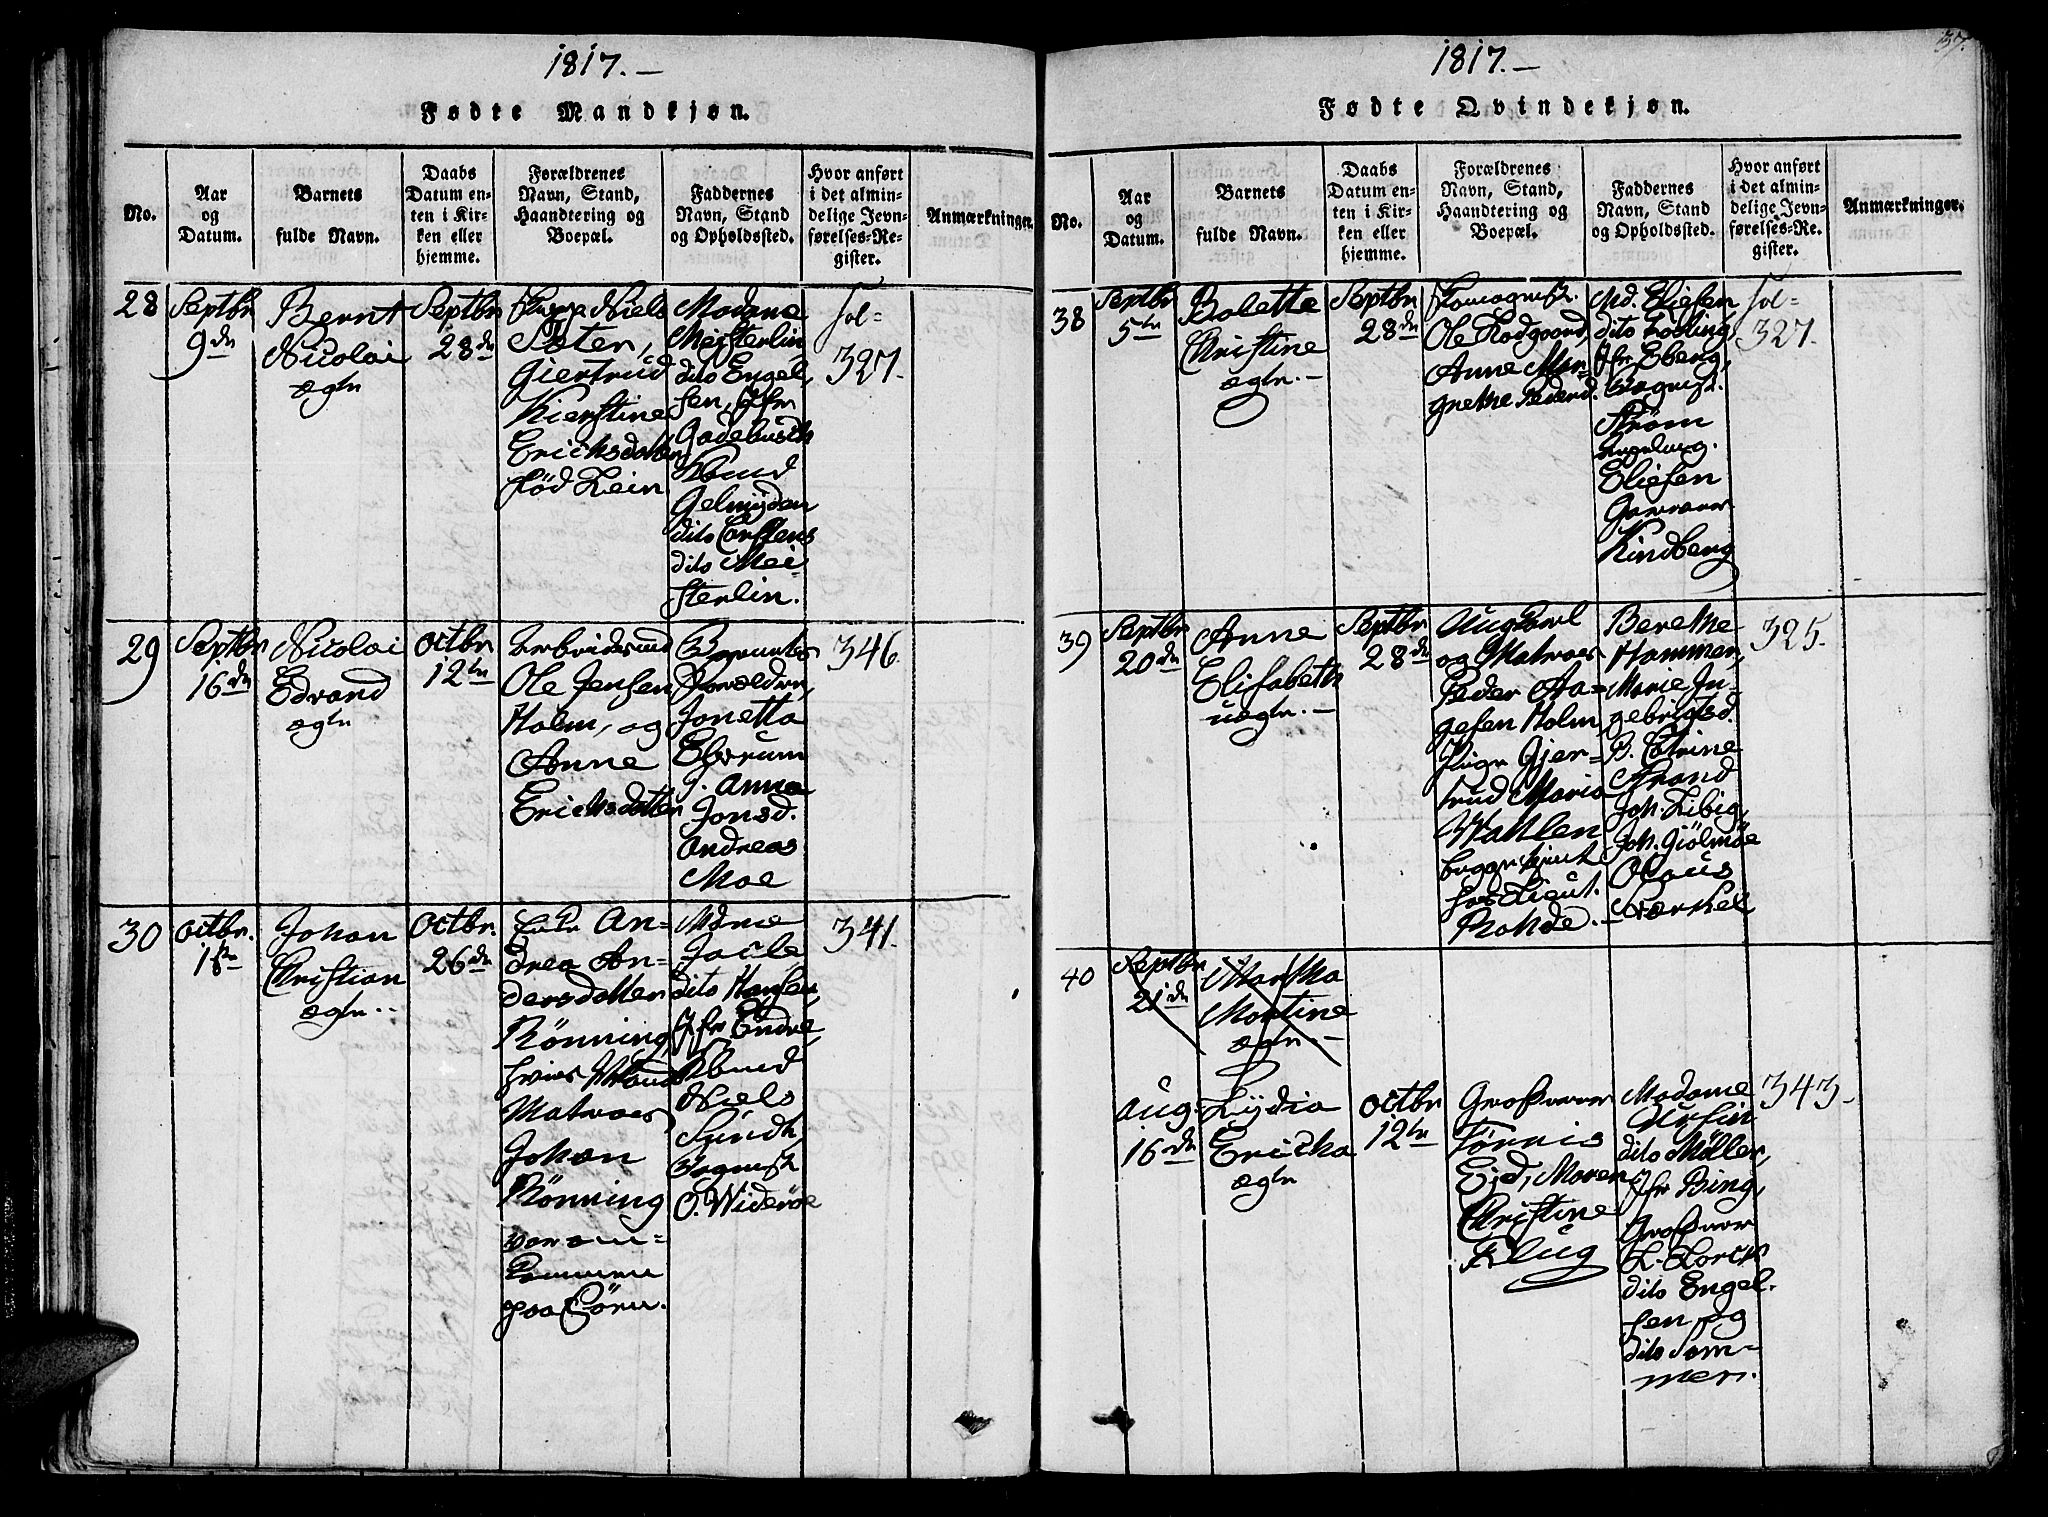 1817.
Fødte Mandkjøn.
No.
Aar
og
Datum.
Barnets
fulde Navn.
Daabs
Datum en-
ten i Kir-
ken eller
hjemme.
Forældrenes
Navn, Stand,
Haandtering og
Boepæl.
Faddernes
Navn, Stand
og Opholdssted.
Hvor anført
i det almin-
delige Jevn-
førelses-Re-
gister.
Anmærkninger.
28
Septbr
9de
Bernt
Nicolai
ægte
Septbr
28de
Niels
Peter,
Giertrud
Kierstine
Ericksdatter
fød Lein
Madame
Meisterlin
dito Engel,
sen, Jfr
Gadebusch
Kbmd
Gelmÿden
dito Carstens
dito Mei-
sterlin.
fol-
327.
29
Septbr
16de
Nicolai
Edvard
ægte
Octbr
12te
Arbeidsmd
Ole Jensen
Holm, og
Anne
Ericksdatter
Barnets
Forældre,
Jonetta
Anne
Jonsd.
Andreas
Moe
346.
30
Octbr.
1ste
Johan
Christian
ægte.
Octbr.
26de
Enke An-
drea An-
dersdatter
Rønning,
hvis Mand
Matroes
Johan
Rønning
var om-
kommen
paa Søen.
Mdme
Jacle
dito Hansen,
Jfr Endre,
Kbmd
Niels
Sundt,
O. Widerøe
341.
37.
1817.
Fødte Qvindekjøn.
No.
Aar
og
Datum.
Barnets
fulde Navn.
Daabs
Datum en-
ten i Kir-
ken eller
hjemme.
Forældrenes
Navn, Stand,
Haandtering og
Boepæl.
Faddernes
Navn, Stand
og Opholdssted.
Hvor anført
i det almin-
delige Jevn-
førelses-Re-
gister.
Anmærkninger.
38
Septbr
5te
Bolette
Christine
ægte.
Septbr
28de
Ole Rodgaard,
Anne Mar-
grethe Pedersd.
Md. Eliesen
dito Lossing,
Jfr Eberg,
Strøm
Eliesen
Garver
Kindberg
fol-
327.
39
Septbr
20de
Anne
Elisabeth
uægte.
Septbr
28de
Ungkarl
og Matroes
Peder Aa-
gesen Holm
Pige Gjer-
trud Marie
Wahlen
begge tient
hos Lieut.
Rohde.
Berethe
Hammer,
Marie In-
gebrigtsd.
B. Catrine
Strand
Joh. Libig,
Joh. Giølmøe
Olaus
Sværkel
325.
40
Septbr
21de
Martha
Martine
ægte.
Aug.
16de
Lÿdia
Ericka
ægte
Octbr
12te
Grosserer
Tønnis
Eid, Maren
Christine
Klug
Madame
Ursin
dito Møller,
Jfr Bing,
Grosserer
L. Lorck
dito Engel-
sen, og
dito Som-
mer.
343.